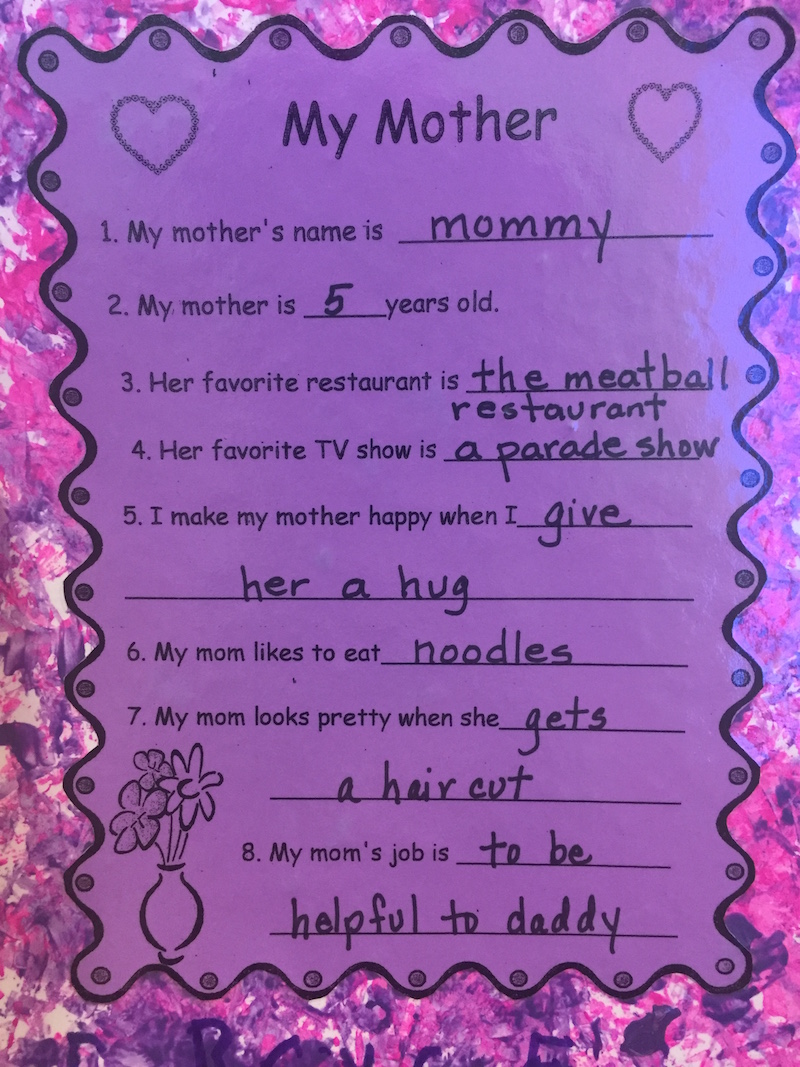 My Mother
1. My mother's name is mommy
2. My mother is 5 years old.
3. Her favorite restaurant is the meatball
restaurant
4. Her favorite TV show is a parade show
5. I make my mother happy when I give
her a hug
6. My mom likes to eat noodles
7. My mom looks pretty when she gets
a hair cut
8. My mom's job is to be
helpful to daddy